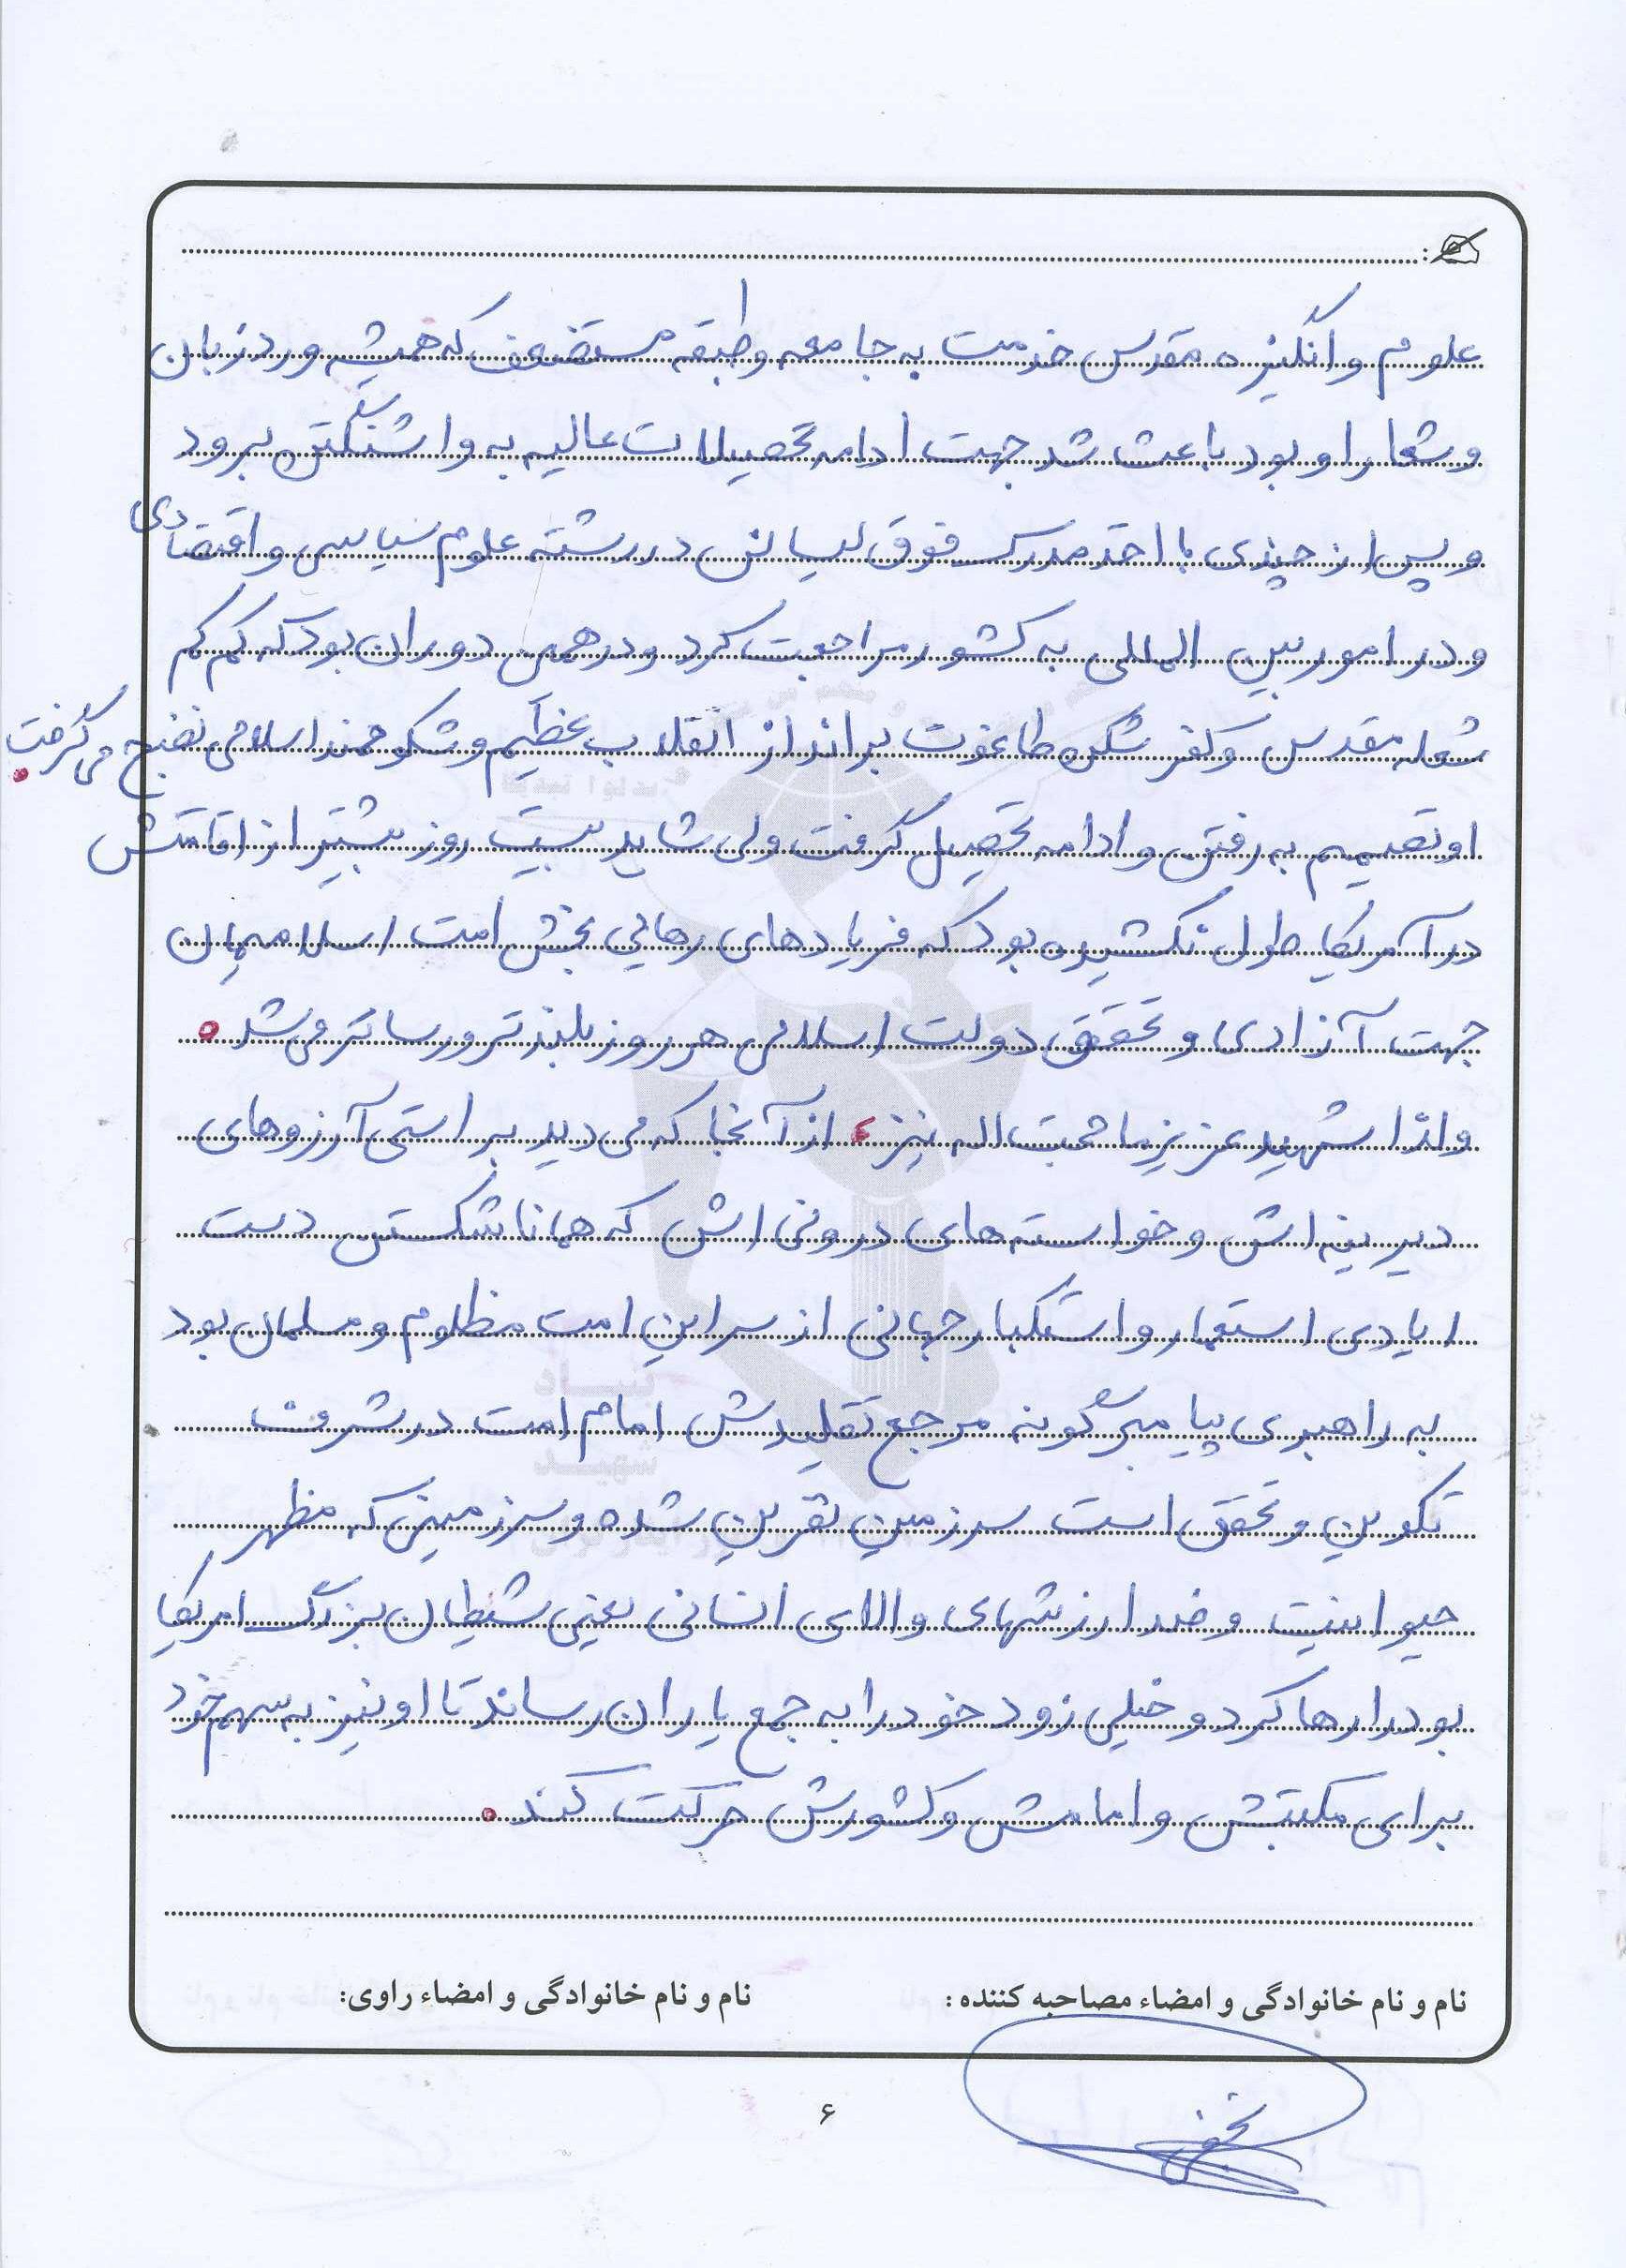 علوم و انگیزه مقدس خدمت به جامعه و طبقه مستضعف که همیشه ورد زبان
و شعار او بود باعث شد جهت ادامه تحصیلات عالیه به واشنگتن برود
و پس از چندی با اخذ مدرک فوق لیسانس در رشته علوم سیاسی و اقتصادی
و در امور بین المللی به کشور مراجعت کرد و در همین دوران بود که کم کم
شعله مقدس و کفر شکن طاغوت برانداز انقلاب عظیم و شکوهمند اسلامی نضج می گرفت.
او تصمیم به رفتن و ادامه تحصیل گرفت ولی شاید بیست روز بیشتر از اقامتش
در آمریکا طول نکشیده بود که فریادهای رهائی بخش امت اسلامیمان
جهت آزادی و تحقق دولت اسلامی هر روز بلندتر و رساتر می شد.
و لذا شهید عزیز ما محبت اله نیز، از آنجا که می دید براستی آرزوهای
دیرینه اش و خواسته های درونی اش که همانا شکستن دست
ایادی استعمار و استکبار جهانی از سر این امت مظلوم و مسلمان بود
به راهبری پیامبرگونه مرجع تقلیدش امام امت در شرف
تکوین و تحقق است سرزمین نفرین شده و سرزمینی که مظهر
حیوانیت و ضد ارزشهای والای انسانی یعنی شیطان بزرگ امریکا
بود را رها کرد و خیلی زود خود را به جمع یاران رساند تا او نیز به سهم خود
برای مکتبش و امامش و کشورش حرکت کند.
نام و نام خانوادگی و امضاء مصاحبه کننده : نام و نام خانوادگی و امضاء راوی:
۶